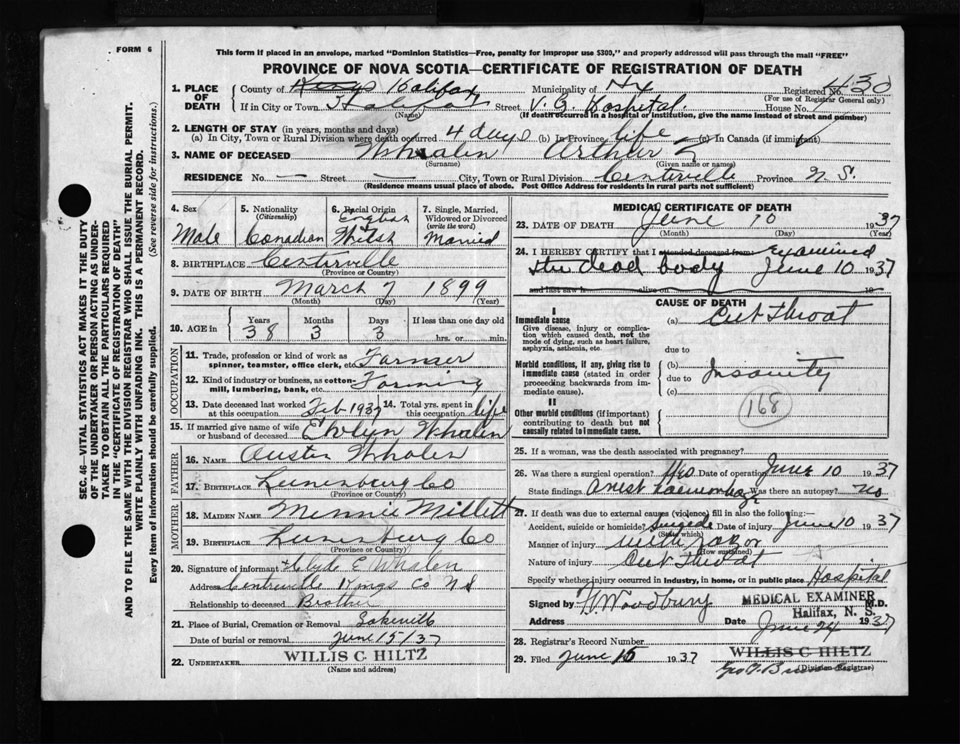 FORM 6
This form if placed in an envelope, marked "Dominion Statistics—Free, penalty for improper use $300," and properly addressed will pass through the mail "FREE"
PROVINCE OF NOVA SCOTIA—CERTIFICATE OF REGISTRATION OF DEATH
SEC. 46—VITAL STATISTICS ACT MAKES IT THE DUTY
OF THE UNDERTAKER OR PERSON ACTING AS UNDER-
TAKER TO OBTAIN ALL THE PARTICULARS REQUIRED
IN THE "CERTIFICATE OF REGISTRATION OF DEATH"
AND TO FILE THE SAME WITH THE DIVISION REGISTRAR WHO SHALL ISSUE THE BURIAL PERMIT.
WRITE PLAINLY WITH UNFADING INK. THIS IS A PERMANENT RECORD.
Every item of Information should be carefully supplied. (See reverse side for instructions.)
1. PLACE OF DEATH
County of Kings Halifax Municipality of Hx Registered No. 430
(For use of Registrar General only)
If in City or Town Halifax Street V. G. Hospital House No.
(Name) (If death occurred in a hospital or institution, give the name instead of street and number)
2. LENGTH OF STAY (in years, months and days)
(a) In City, Town or Rural Division where death occurred 4 days (b) In Province life (c) In Canada (if immigrant)
3. NAME OF DECEASED Whalen Arthur
(Surname) (Given name or names)
RESIDENCE No. — Street — City, Town or Rural Division Centerville Province N. S.
(Residence means usual place of abode. Post Office Address for residents in rural parts not sufficient)
4. Sex Male
5. Nationality (Citizenship) Canadian
6. Racial Origin English Welsh
7. Single, Married, Widowed or Divorced (write the word) Married
8. BIRTHPLACE Centerville
(Province or Country)
9. DATE OF BIRTH March 7 1899
(Month) (Day) (Year)
10. AGE in Years 38 Months 3 Days 3 If less than one day old hrs. or min.
OCCUPATION
11. Trade, profession or kind of work as spinner, teamster, office clerk, etc. Farmer
12. Kind of industry or business, as cotton-mill, lumbering, bank, etc. Farming
13. Date deceased last worked at this occupation Feb 1937 14. Total yrs. spent in this occupation life
15. If married give name of wife or husband of deceased Evelyn Whalen
FATHER
16. Name Austin Whalen
17. Birthplace Lunenburg Co
(Province or Country)
MOTHER
18. Maiden Name Minnie Millett
19. Birthplace Lunenburg Co
(Province or Country)
20. Signature of informant Clyde E Whalen
Address Centreville Kings Co N S
Relationship to deceased Brother
21. Place of Burial, Cremation or Removal
Date of burial or removal June 15/37
22. UNDERTAKER WILLIS C. HILTZ
(Name and address)
MEDICAL CERTIFICATE OF DEATH
23. DATE OF DEATH June 10 1937
(Month) (Day) (Year)
24. I HEREBY CERTIFY that I attended deceased from examined
the dead body June 10 1937
and last saw h alive on 19
CAUSE OF DEATH
I
Immediate cause
Give disease, injury or complication which caused death, not the mode of dying, such as heart failure, asphyxia, asthenia, etc.
(a) Cut Throat
due to
Morbid conditions, if any, giving rise to immediate cause (stated in order proceeding backwards from immediate cause).
(b)
due to Insanity
(c)
168
II
Other morbid conditions (if important) contributing to death but not causally related to immediate cause.
25. If a woman, was the death associated with pregnancy?
26. Was there a surgical operation? Yes Date of operation June 10 1937
State findings Arrest haemorrhage Was there an autopsy? no
27. If death was due to external causes (violence) fill in also the following:
Accident, suicide or homicide? Suicide Date of injury June 10 1937
(State which)
Manner of injury with razor
(How sustained)
Nature of injury Cut Throat
Specify whether injury occurred in industry, in home, or in public place Hospital
Signed by H. Woodbury MEDICAL EXAMINER M.D.
Halifax, N. S.
Address Date June 24 1937
28. Registrar's Record Number
29. Filed June 15 1937 WILLIS C HILTZ
(Division Registrar)